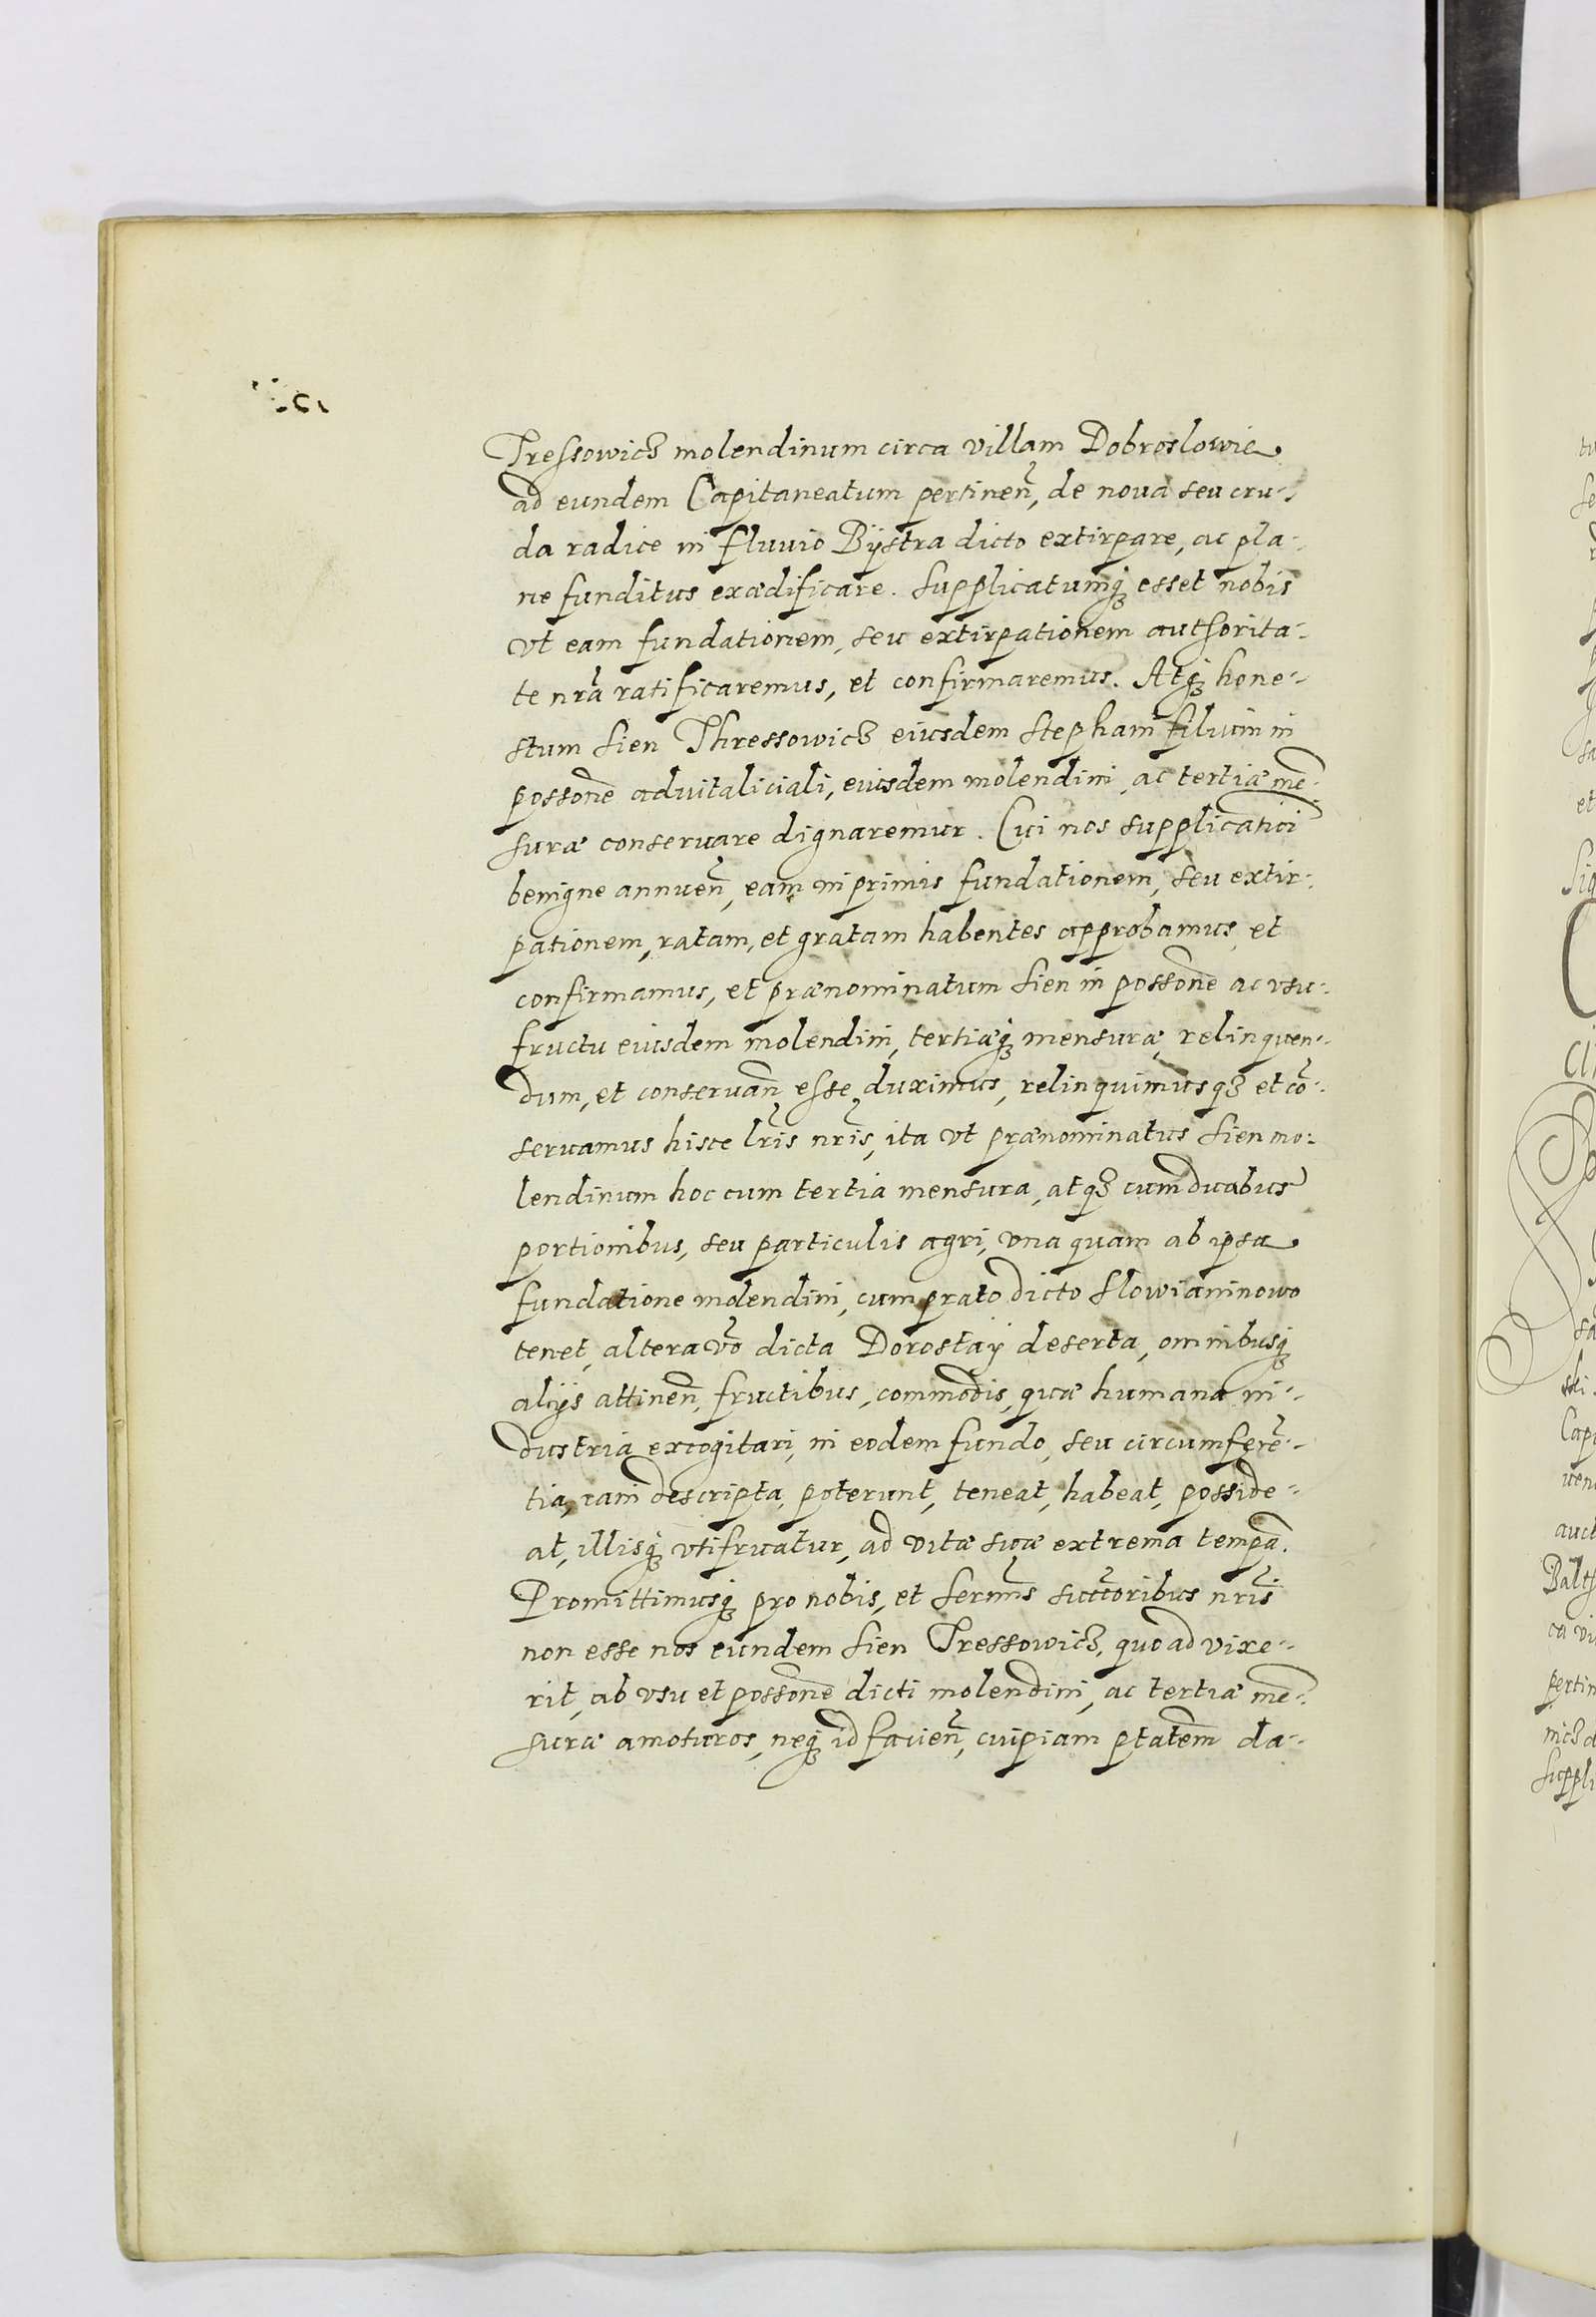 Tressowicz molendinum circa villam Dobroslowie
ad eundem Capitaneatum pertinen̄, de noua seu cru-
da radice in fluuio Bÿstra dicto extirpare, ac pla-
ne funditus exædificare. Supplicatumq; esset nobis
vt eam fundationem, seu extirpationem authorita-
te nrā ratificaremus, et confirmaremus. Atq; hone-
stum Sien Thressowicz eiusdem Stephani filium in
possonē aduitaliciali, eiusdem molendini, ac tertiæ mē-
suræ conseruare dignaremur. Cui nos supplicatioī
benigne annuen̄, eam inprimis fundationem, seu extir-
pationem, ratam, et gratam habentes approbamus, et
confirmamus, et prænominatum Sien in possonē ac vsu-
fructu eiusdem molendini, tertiæq; mensuræ, relinquen-
dum, et conseruan̄ esse duximus, relinquimusq; et cō-
seruamus hisce lrīs nrīs, ita vt prænominatus Sien mo-
lendinum hoc cum tertia mensura, atq; cum duabus
portionibus, seu particulis agri, vna quam ab ipsa
fundatione molendini, cum prato dicto Slowianinowo
tenet, altera vō dicta Dorostaÿ deserta, omnibusq;
alijs attinen̄, fructibus, commodis, quæ humana in-
dustria excogitari, in eodem fundo, seu circumferē-
tia, iam descripta, poterunt, teneat, habeat, posside-
at, illisq; vtifruatur, ad vitæ suæ extrema tempā.
Promittimusq; pro nobis, et Sermīs succ̄oribus nrīs
non esse nos eundem Sien Tressowicz, quoad vixe-
rit, ab vsu et possonē dicti molendini, ac tertiæ mē-
suræ amoturos, neq; id facien̄, cuipiam ptatēm da-